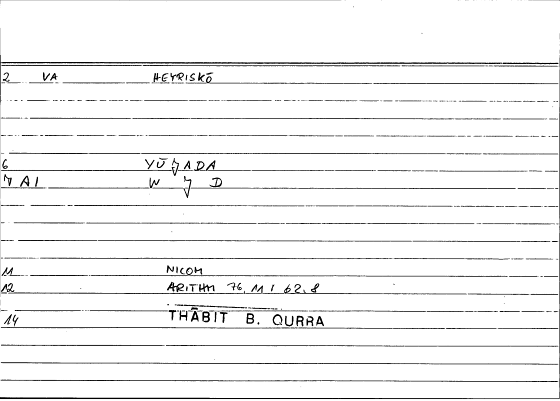 2 VA HEYRISKŌ
6 YŪ ʕ ADA
ʕ AI W ʕ D
11 NICOM
12 ARITHM 76, 11 / 62.8
14 THÂBIT B. QURRA